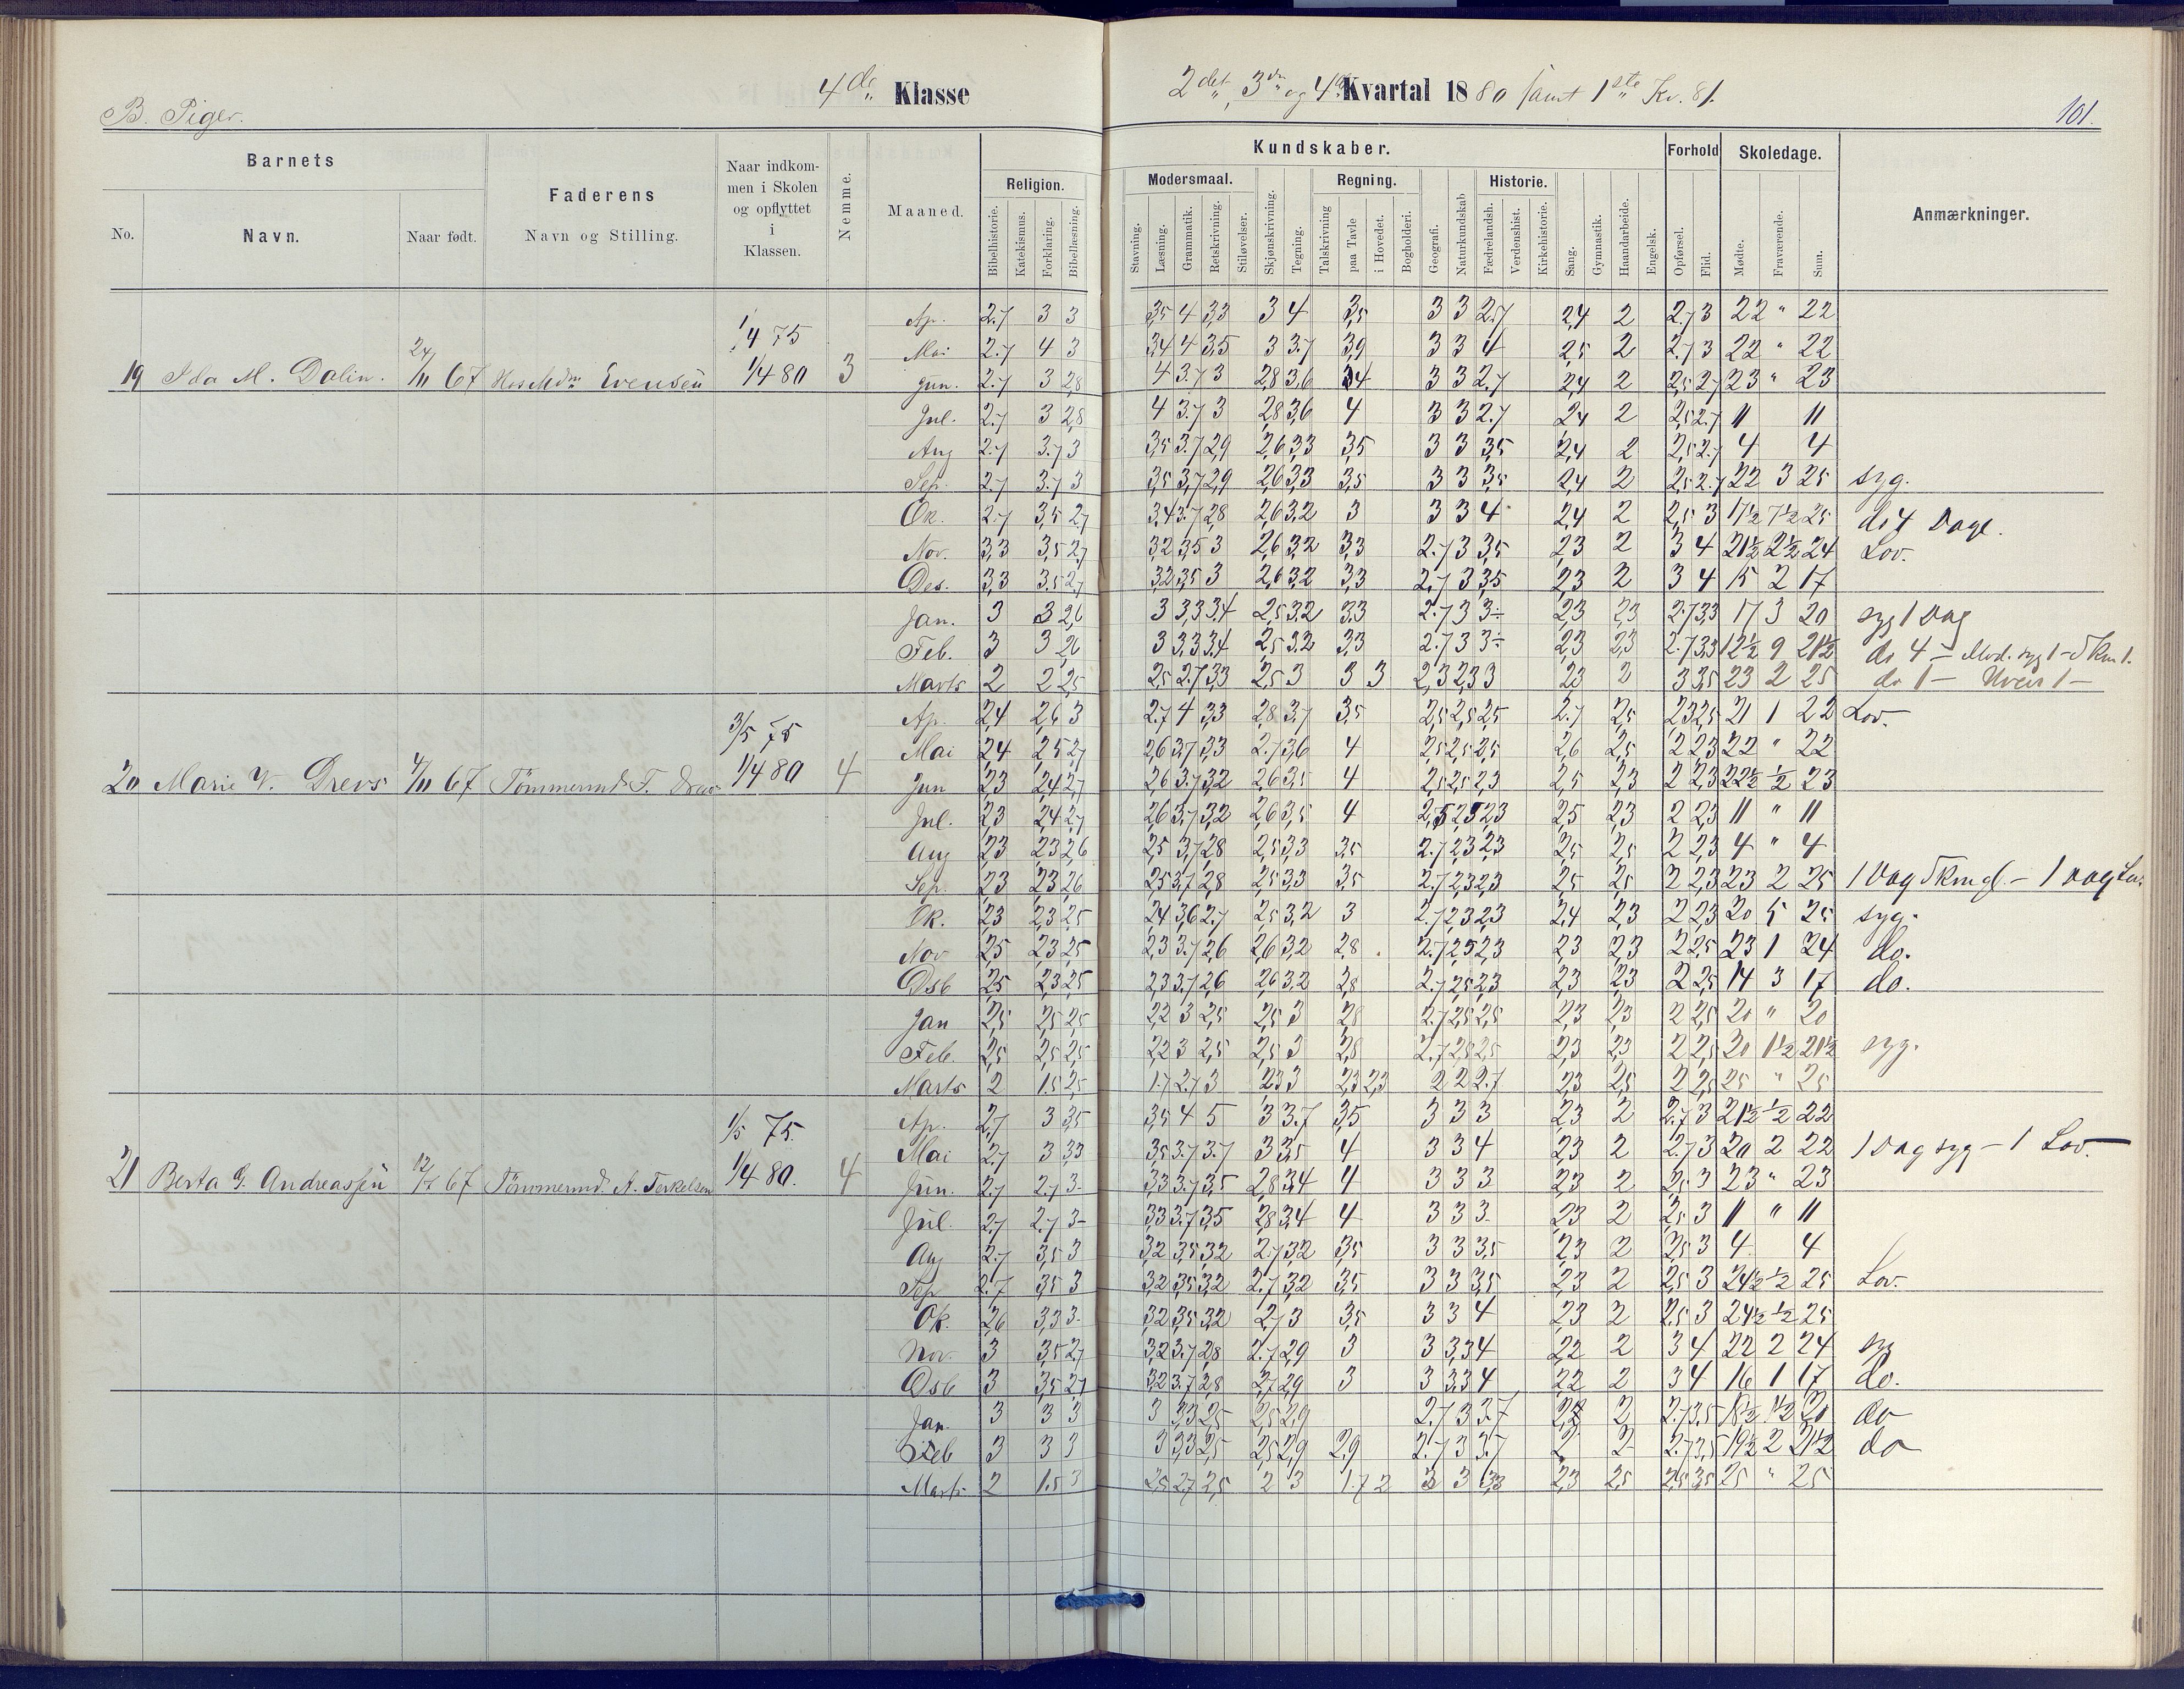 B. Piger.
4de Klasse
2det, 3die og 4de Kvartal 1880 samt 1ste Kv. 81.
101.
Barnets
Faderens
Naar indkommen i Skolen og opflyttet i Klassen.
Nemme.
Maaned.
Kundskaber.
Forhold
Skoledage.
Anmærkninger.
No.
Navn.
Naar født.
Navn og Stilling.
Religion.
Modersmaal.
Regning.
Historie.
Bibelhistorie.
Katekismus.
Forklaring.
Bibellæsning.
Stavning.
Læsning.
Grammatik.
Retskrivning.
Stiløvelser.
Skjønskrivning.
Tegning.
Talskrivning
paa Tavle
i Hovedet.
Bogholderi.
Geografi.
Naturkundskab
Fædrelandsh.
Verdenshist.
Kirkehistorie.
Sang.
Gymnastik.
Haandarbeide.
Engelsk.
Opførsel.
Flid.
Mødte.
Fraværende.
Sum.
1/4 75
19 Ida M. Dalin. 24/11 67 Hos Mdm Evensen 1/4 80 3
Ap. 2.7 3 3 3,5 4 3,3 3 4 3,5 3 3 2.7 2,4 2 2.7 3 22 " 22
Mai 2.7 4 3 3,4 4 3,5 3 3.7 3,9 3 3 4 2,5 2 2.7 3 22 " 22
Jun. 2.7 3 2,8 4 3.7 3 2,8 3,6 3 3 2.7 2,4 2 2,5 2.7 23 " 23
Jul. 2.7 3 2,8 4 3.7 3 2,8 3,6 4 3 3 2.7 2,4 2 2,5 2.7 11 11
Aug 2.7 3.7 3 3,5 3.7 2,9 2,6 3,3 3,5 3 3 3,5 2,4 2 2,5 2.7 4 4
Sep. 2.7 3.7 3 3,5 3,7 2,9 2,6 3,3 3,5 3 3 3,5 2,4 2 2,5 2.7 22 3 25 syg.
Ok. 2.7 3,5 2,7 3,4 3.7 2,8 2,6 3,2 3 3 3 4 2,4 2 2,5 3 17½ 7½ 25 do 4 Dage.
Nov. 3,3 3,5 2,7 3,2 3,5 3 2,6 3,2 3,3 2.7 3 3,5 2,3 2 3 4 21½ 2½ 24 Lov.
Des. 3,3 3,5 2,7 3,2 3,5 3 2,6 3,2 3,3 2,7 3 3,5 2,3 2 3 4 15 2 17
Jan. 3 3 2,6 3 3,3 3,4 2,5 3,2 3,3 2.7 3 3 2,3 2,3 2.7 3,3 17 3 20 syg 1 Dag
Feb. 3 3 2,6 3 3,3 3,4 2,5 3,2 3,3 2.7 3 3 2,3 2,3 2.7 3,3 12½ 9 21½ do 4 –
Marts 2 2 2,5 2,5 2.7 3,3 2,5 3 3 3 2,3 2,3 3 2,3 2 3 3,5 23 2 25 do 1 – Uveir 1 –
3/5 75
20 Marie V. Drevs 4/11 67 Tömmermd. T. Drevs 1/4 80 4
Ap. 2,4 2,6 3 2.7 4 3,3 2,8 3,7 3,5 2,5 2,5 2,5 2.7 2,5 2,3 2,5 21 1 22 Lov.
Mai 2,4 2,5 2,7 2,6 3,7 3,3 2.7 3,6 4 2,5 2,5 2,5 2,6 2,5 2 2,3 22 " 22
Jun 2,3 2,4 2,7 2,6 3.7 3,2 2,6 3,5 4 2,5 2,5 2,3 2,5 2,3 2 2,3 22½ ½ 23
Jul. 2,3 2,4 2,7 2,6 3.7 3,2 2,6 3,5 4 2,5 2,5 2,3 2,5 2,3 2 2,3 11 " 11
Aug 2,3 2,3 2,6 2,5 3,7 2,8 2,5 3,3 3,5 2.7 2,3 2,3 2,5 2,5 2 2,3 4 " 4
Sep. 2,3 2,3 2,6 2,5 3,7 2,8 2,5 3,3 3,5 2.7 2,3 2,3 2,5 2,5 2 2,3 23 2 25 1 Dag
Ok. 2,3 2,3 2,5 2,4 3,6 2.7 2,5 3,2 3 2.7 2,3 2,3 2,4 2,3 2 2,3 20 5 25 syg.
Nov 2,5 2,3 2,5 2,3 3.7 2,6 2,6 3,2 2,8 2.7 2,5 2,3 2,3 2,3 2 2,5 23 1 24 do.
Dsb 2,5 2,3 2,5 2,3 3.7 2,6 2,6 3,2 2,8 2.7 2,5 2,3 2,3 2,3 2 2,5 14 3 17 do.
Jan 2,5 2,5 2,5 2,2 3 2,5 2,5 3 2,8 2.7 2,5 2,5 2,3 2,3 2 2,5 20 " 20
Feb. 2,5 2,5 2,5 2,2 3 2,5 2,5 3 2,8 2.7 2,5 2,5 2,3 2,3 2 2,5 20 1½ 21½ syg.
Marts 2 1.5 2,5 1.7 2.7 3 2,3 3 2,3 2,3 2 2 2.7 2,3 2,5 2 2,5 25 " 25
1/5 75.
21 Berta G. Andreassen 67 Tömmermd. A. Terkelsen 1/4 80. 4
Ap. 2,7 3 3,5 3,5 4 5 3 3.7 3,5 3 3 3 2,3 2 2.7 3 21½ ½ 22
Mai 2,7 3 3,3 3,5 3.7 3.7 3 3,5 4 3 3 4 2,3 2 2.7 3 20 2 22 1 Dag syg – 1 Lov.
Jun. 2.7 2.7 3 3,3 3.7 3,5 2,8 3,4 4 3 3 3 2,3 2 2,5 3 23 " 23
Jul. 2,7 2.7 3 3,3 3,7 3,5 2,8 3,4 4 3 3 3 2,3 2 2,5 3 11 " 11
Aug 2.7 3,5 3 3,2 3,5 3,2 2.7 3,2 3,5 3 3 3,5 2,3 2 2,5 3 4 4
Sep 2.7 3,5 3 3,2 3,5 3,2 2.7 3,2 3,5 3 3 3,5 2,3 2 2,5 3 24½ ½ 25 Lov.
Ok. 2,6 3,3 3 3,2 3,5 3,2 2,7 3 3,5 3 3 4 2,3 2 2,5 3 24½ ½ 25
Nov. 3 3,5 2,7 3,2 3.7 2,8 2.7 2,9 3 3 3,3 4 2,2 2 3 4 22 2 24 syg
Dsb 3 3,5 2,7 3,2 3.7 2,8 2,7 2,9 3 3 3,3 4 2,2 2 3 4 16 1 17 do.
Jan. 3 3 3 3 3,3 2,5 2,5 2,9 2.7 3 3.7 2 2.7 3,5 18½ 1½ 20 do
Feb 3 3 3 3 3,3 2,5 2,5 2,9 2,9 2.7 3 3.7 2 2 2.7 3,5 19½ 2 21½ do
Marts 2 1.5 3 2,5 2,7 2,5 2 3 1.7 2 3 3 3,3 2,3 2,5 2,5 3,5 25 " 25